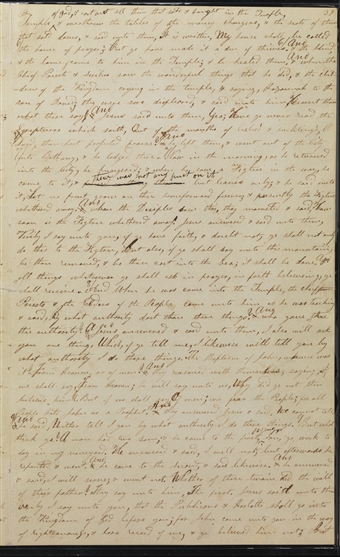 of God & cast out all them that sold & bought in the Temple, 23
Temple, & overthrew the tables of the money changers, & the seats of them
that sold doves, & said unto them, It is written, My house shall be called
the house of prayer; But ye have made it a den of thieves, And the blind
& the lame came to him in the Temple; & he healed them, And when the
Chief Priests & Scribes saw the wonderful things that he did, & the chil
dren of the Kingdom crying in the temple, & saying, Hosannah to the
son of David; they were sore displeased, & said unto him Hearest thou
what these say? And Jesus said unto them, Yea; Have ye never read the
scriptures which saith, Out of the mouths of babes & sucklings, O
Lord, thou hast perfected praise? And he left them, & went out of the city
into Bethany, & he lodged there. Now in the morning, as he returned
into the city, he hungered; & when he saw a Fig tree in the way, he
came to it, & there was not any fruit on it but leaves only, & he said unto
it, Let no fruit grow on thee henceforward forever, & presently the Figtree
withered away. And when the Disciples saw this, they marveled & said how
soon is the Figtree withered away. Jesus answered & said unto them,
Verily I say unto you, if ye have faith, & doubt not, ye shall not only
do this to the Figtree, but also, if ye shall say unto this mountain,
be thou removed, & be thou cast into the Sea; it shall be done. And
all things whatsoever ye shall ask in prayer, in faith believeing, ye
shall receive. And When he was come into the Temple, the chief
Priests & the Elders of the People came unto him, as he was teaching
& said, By what authority doest thou these things? And who gave thee
this authority? And Jesus answered & said unto them, I also will ask
you one thing, Which, if ye tell me, I likewise will tell you by
what authority I do these things. The Baptism of John, whence was
it? from heaven, or of men? And they reasoned with themselves, saying, if
we shall say, from heaven; he will say unto us, Why did ye not then
believe him? But if we shall say, of men; we fear the People; for all
People hold John as a Prophet. And they answered Jesus & said, We cannot tell.
And he said, Neither tell I you by what authority I do these things. But what
think ye? A man had two sons; & he came to the first saying, Son, go work to
day in my vineyard. He answered & said, I will not; but afterwards he
repented, & went. And he came to the second, & said likewise, & he answered
& said, I will serve; & went not. Whether of these twain did the will
of their father? They say unto him, The first. Jesus said unto them
verily I say unto you, that the Publicans & Harlots shall go into
the Kingdom of God before you; for John came unto you in the way
of righteousness, & bore record of me, & ye believed him not; But